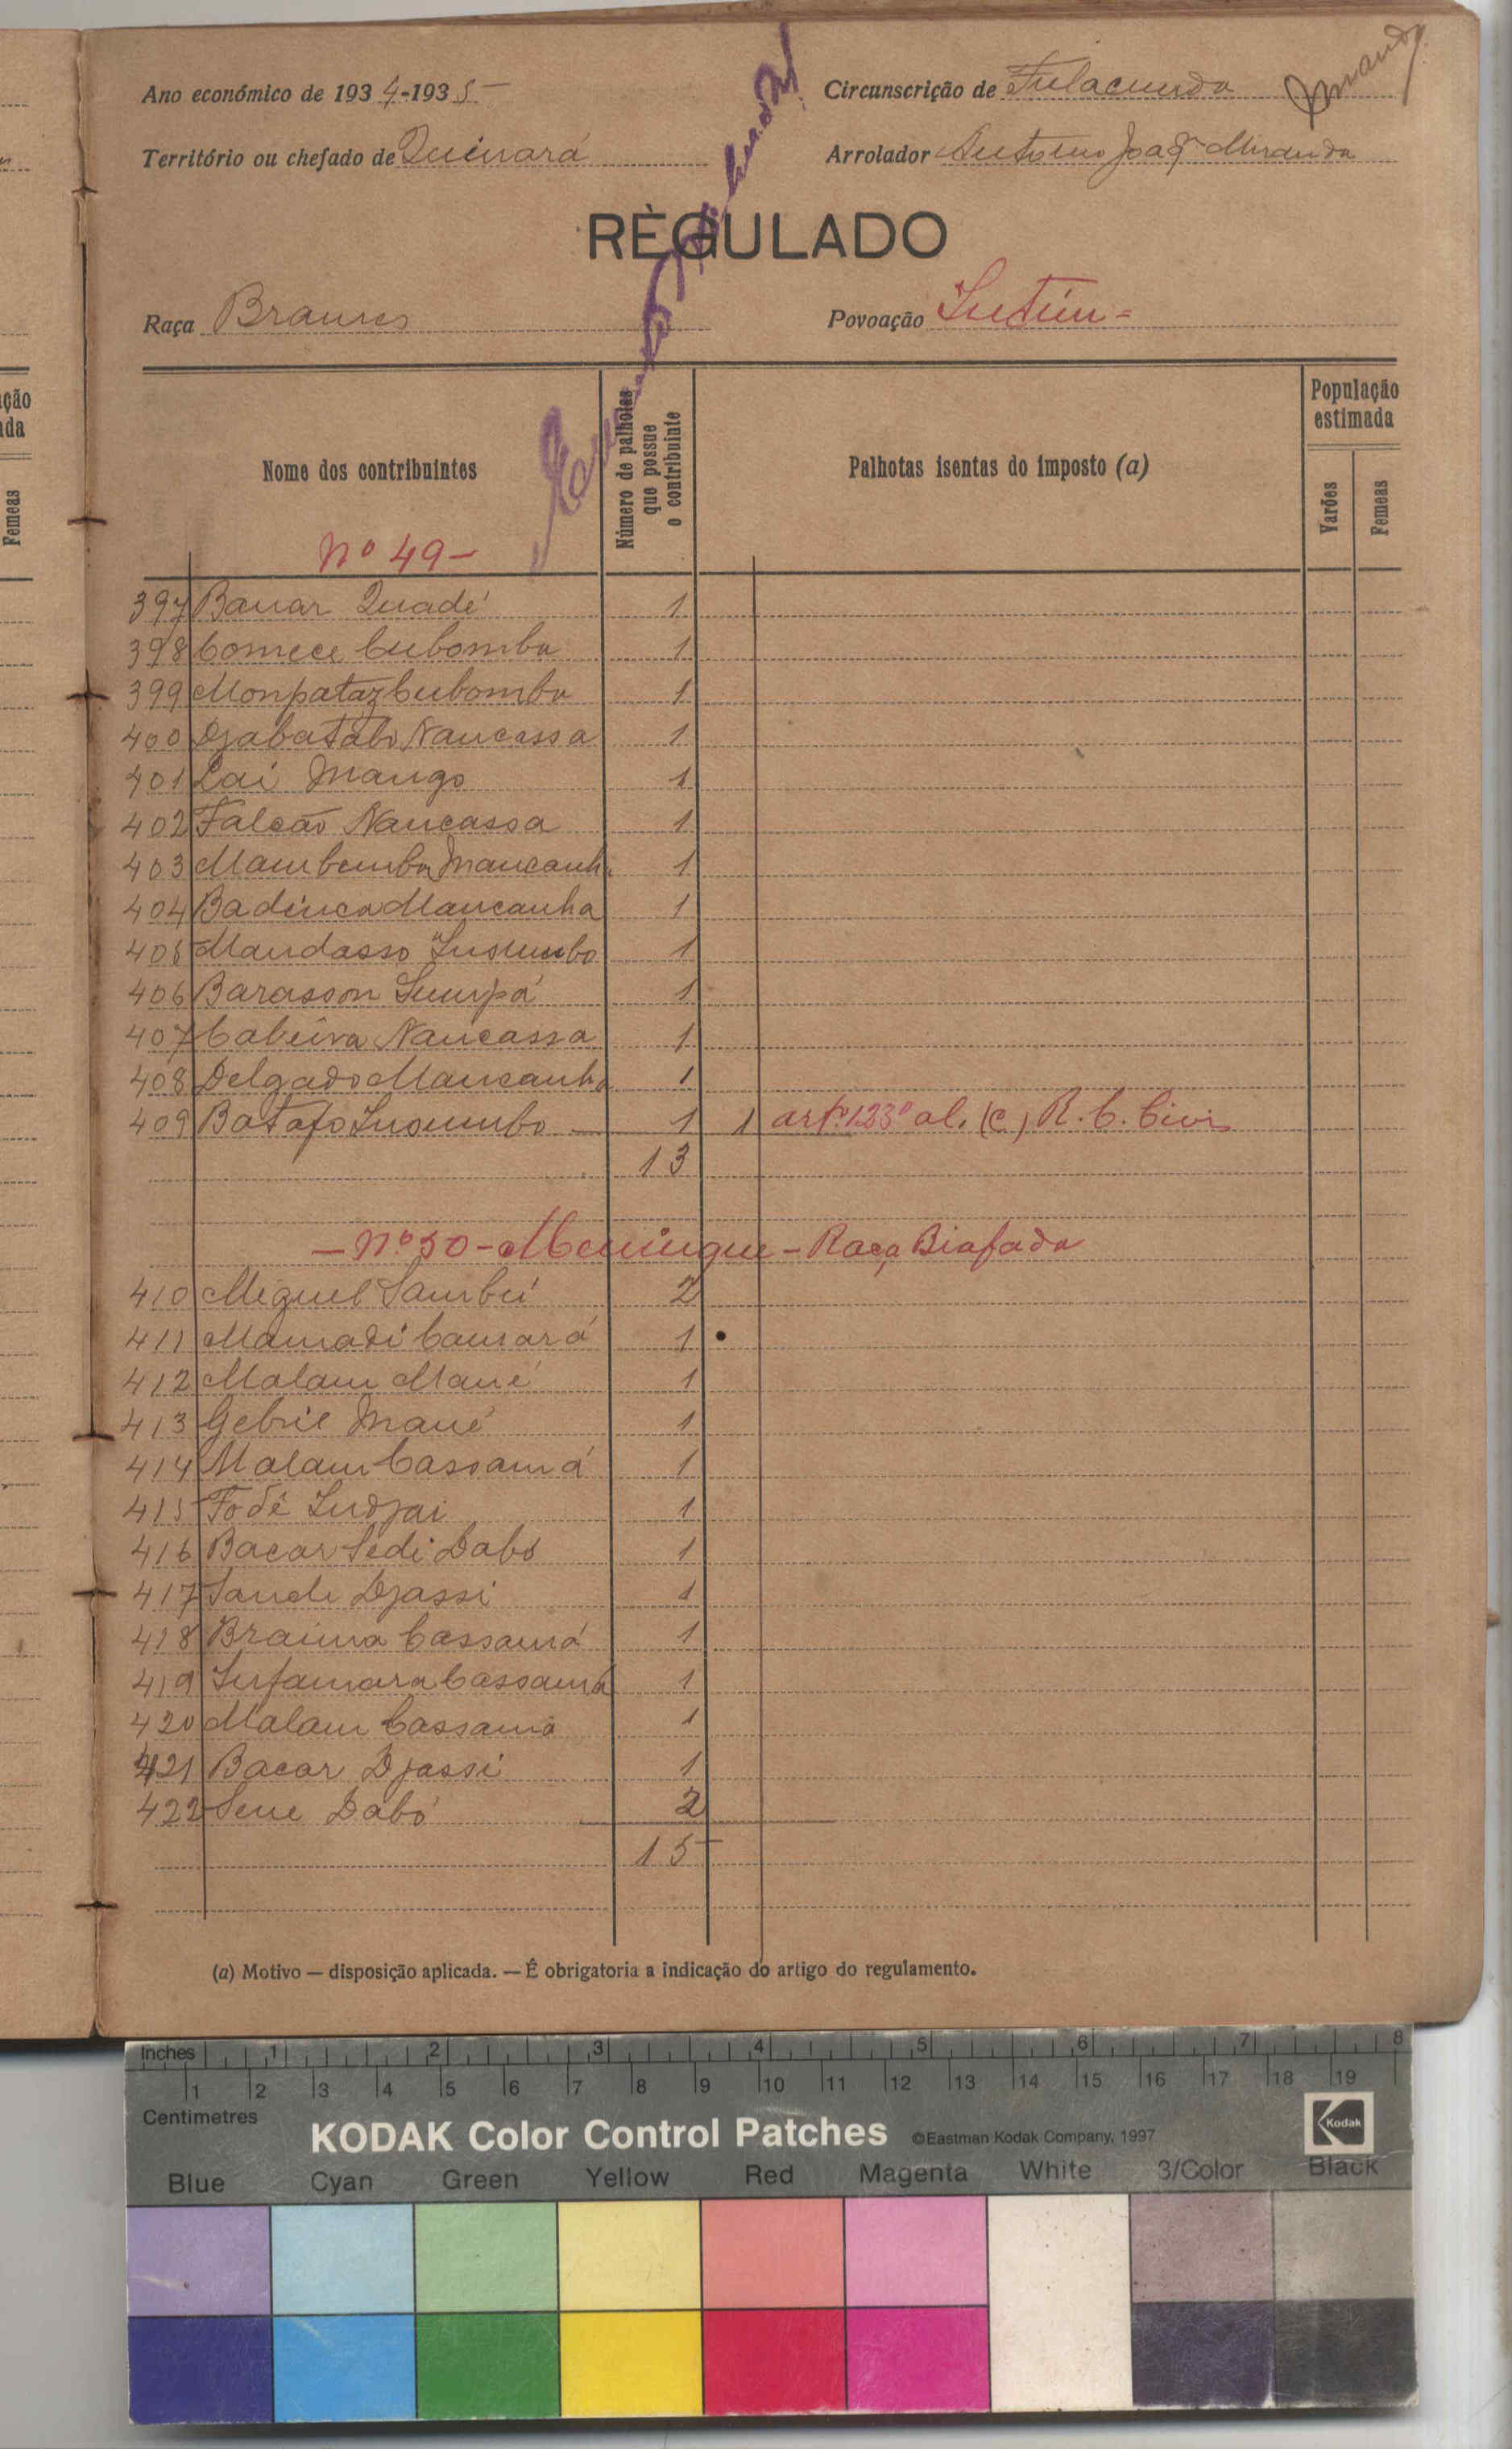 Ano económico de 1934-1935
Circunscrição de Fulacunda
Território ou chefado de Quinará
Arrolador Antonio Joaqm Miranda
RÈGULADO
Raça Brames
Povoação
Nome dos contribuintes
Número de palhotas que possue o contribuinte
Palhotas isentas do imposto (a)
População estimada
Varões
Femeas
Nº 49-
397 Banar Quadé 1
398 Comece Cubomba 1
399 Monpataz Cubomba 1
400 Djabatabo Nancassa 1
401 Lai Mango 1
402 Falcão Nancassa 1
403 Mambemba Mancanha 1
404 Badinca Mancanha 1
405 Mandasso 1
406 Barasson 1
407 Nancassa 1
408 Delgado Mancanha 1
409 Batafo 1 1 artº. 123º al. (c) R. C. Civis
13
- Nº 50 - Meningue - Raça Biafada
410 Miguel Sambú 2
411 Mamadi Camará 1
412 Malam Mané 1
413 Gebril Mané 1
414 Malam Cassamá 1
415 Fodé Indjai 1
416 Bacar Sedi Dabó 1
417 Djassi 1
418 Braima Cassamá 1
419 Infamara Cassamá 1
420 Malam Cassamá 1
421 Bacar Djassi 1
422 Sene Dabó 2
15
(a) Motivo — disposição aplicada. — É obrigatoria a indicação do artigo do regulamento.
ção
da
Femeas
Inches 1 2 3 4 5 6 7 8
1 2 3 4 5 6 7 8 9 10 11 12 13 14 15 16 17 18 19
Centimetres
KODAK Color Control Patches ©Eastman Kodak Company, 1997 Kodak
Blue Cyan Green Yellow Red Magenta White 3/Color Black